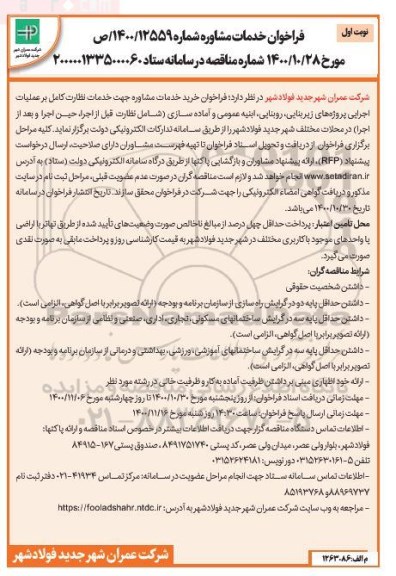 نوبت اول
فراخوان خدمات مشاوره شماره ۱۴۰۰/۱۲۵۵۹/ص
مورخ ۱۴۰۰/۱۰/۲۸ شماره مناقصه در سامانه ستاد ۲۰۰۰۰۰۱۳۳۵۰۰۰۰۶۰
شرکت عمران شهر جدید فولادشهر
شرکت عمران شهر جدید فولادشهر در نظر دارد: فراخوان خرید خدمات مشاوره جهت خدمات نظارت کامل بر عملیات
اجرایی پروژه‌های زیربنایی، روبنایی، ابنیه عمومی و آماده سازی (شامل نظارت قبل از اجرا، حین اجرا و بعد از
اجرا) در محلات مختلف شهر جدید فولادشهر را از طریق سامانه تدارکات الکترونیکی دولت برگزار نماید. کلیه مراحل
برگزاری فراخوان از دریافت و تحویل اسناد فراخوان تا تهیه فهرست مشاوران دارای صلاحیت، ارسال درخواست
پیشنهاد (RFP)، ارائه پیشنهاد مشاوران و بازگشایی پاکتها از طریق درگاه سامانه الکترونیکی دولت (ستاد) به آدرس
www.setadiran.ir انجام خواهد شد و لازم است مناقصه گران در صورت عدم عضویت قبلی، مراحل ثبت نام در سایت
مذکور و دریافت گواهی امضاء الکترونیکی را جهت شرکت در فراخوان محقق سازند. تاریخ انتشار فراخوان در سامانه
تاریخ ۱۴۰۰/۱۰/۳۰ می‌باشد.
محل تامین اعتبار: پرداخت حداقل چهل درصد از مبالغ ناخالص صورت وضعیت‌های تأیید شده از طریق تهاتر با اراضی
یا واحدهای موجود با کاربری مختلف در شهر جدید فولادشهر به قیمت کارشناسی روز و پرداخت مابقی به صورت نقدی
صورت می‌گیرد.
شرایط مناقصه گران:
- داشتن شخصیت حقوقی
- داشتن حداقل پایه دو در گرایش راه سازی از سازمان برنامه و بودجه (ارائه تصویر برابر با اصل گواهی، الزامی است).
- داشتن حداقل پایه سه در گرایش ساختمانهای مسکونی، تجاری، اداری، صنعتی و نظامی از سازمان برنامه و بودجه
(ارائه تصویر برابر با اصل گواهی، الزامی است).
- داشتن حداقل پایه سه در گرایش ساختمانهای آموزشی، ورزشی، بهداشتی و درمانی از سازمان برنامه و بودجه (ارائه
تصویر برابر با اصل گواهی، الزامی است).
- ارائه خود اظهاری مبنی بر داشتن ظرفیت آماده به کار و ظرفیت خالی در رشته مورد نظر
- مهلت زمانی دریافت اسناد فراخوان: از روز پنجشنبه مورخ ۱۴۰۰/۱۰/۳۰ تا روز چهارشنبه مورخ ۱۴۰۰/۱۱/۰۶
- مهلت زمانی ارسال پاسخ فراخوان: ساعت ۱۴:۳۰ روز شنبه مورخ ۱۴۰۰/۱۱/۱۶
- اطلاعات تماس دستگاه مناقصه گزار جهت دریافت اطلاعات بیشتر در خصوص اسناد مناقصه و ارائه پاکتها:
فولادشهر، بلوار ولی عصر، میدان ولی عصر، کد پستی ۸۴۹۱۷۵۱۷۴۰، صندوق پستی ۱۶۷-۸۴۹۱۵
تلفن ۵-۰۳۱۵۲۶۳۰۱۶۱ دورنویس: ۰۳۱۵۲۶۲۴۱۸۱
- اطلاعات تماس سامانه ستاد جهت انجام مراحل عضویت در سامانه: مرکز تماس ۴۱۹۳۴-۰۲۱ دفتر ثبت نام
۸۸۹۶۹۷۳۷ و ۸۵۱۹۳۷۶۸
- مراجعه به وب سایت شرکت عمران شهر جدید فولادشهر به آدرس: https://fooladshahr.ntdc.ir
شرکت عمران شهر جدید فولادشهر
م الف: ۱۲۶۳۰۸۶